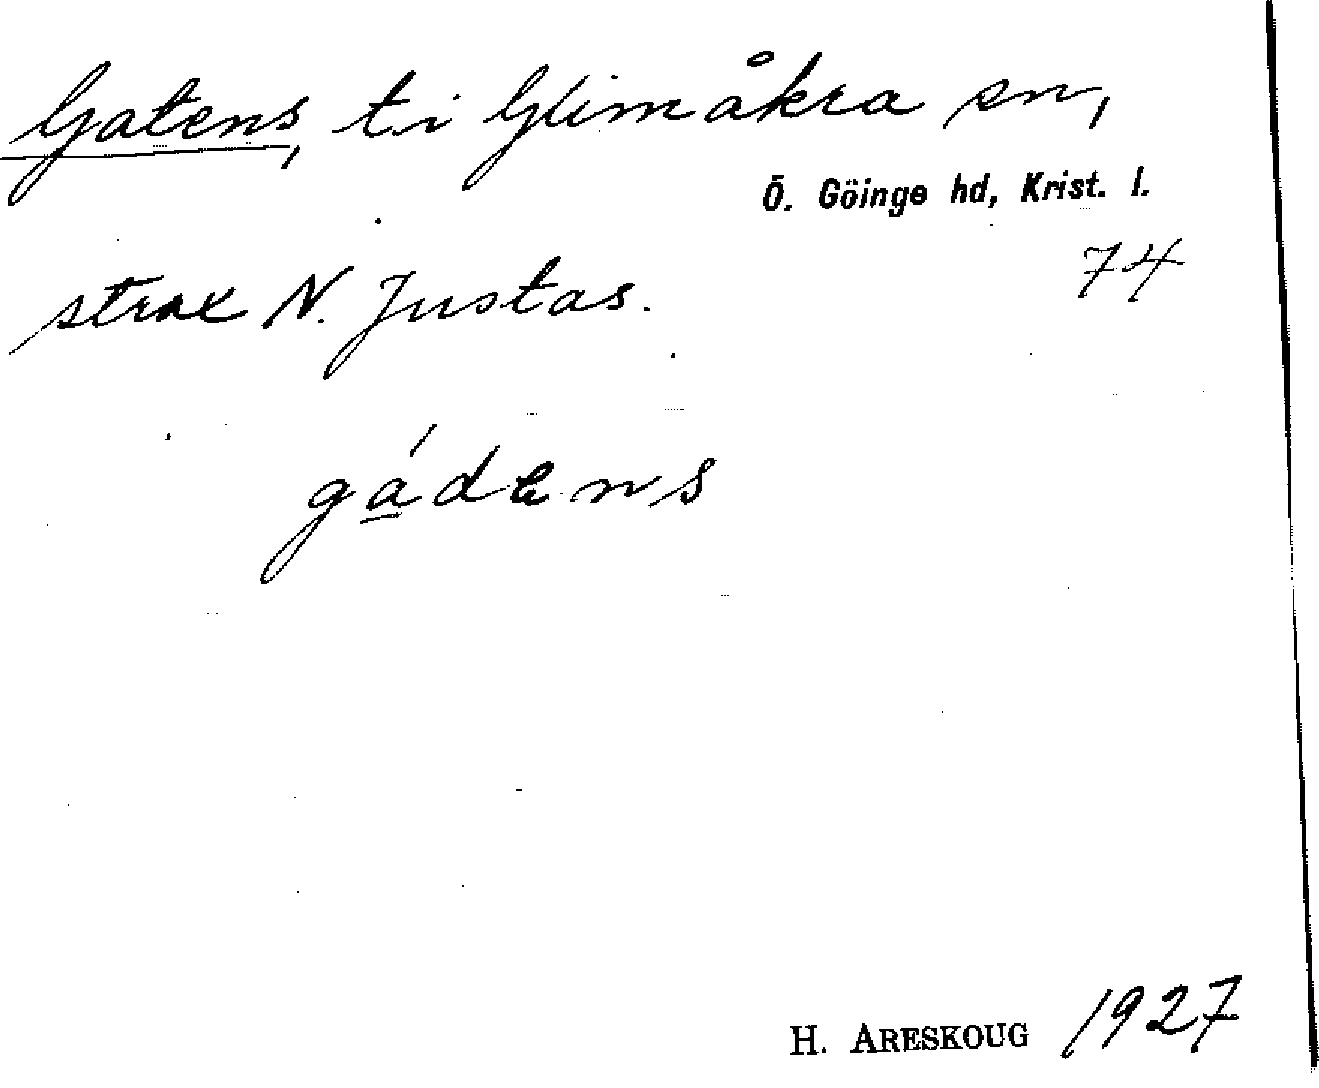 Gatens, ti Glimåkra sn,
Ö. Göinge hd, Krist. l.
74
strax N. Justas.
gádens
H. ARESKOUG 1927